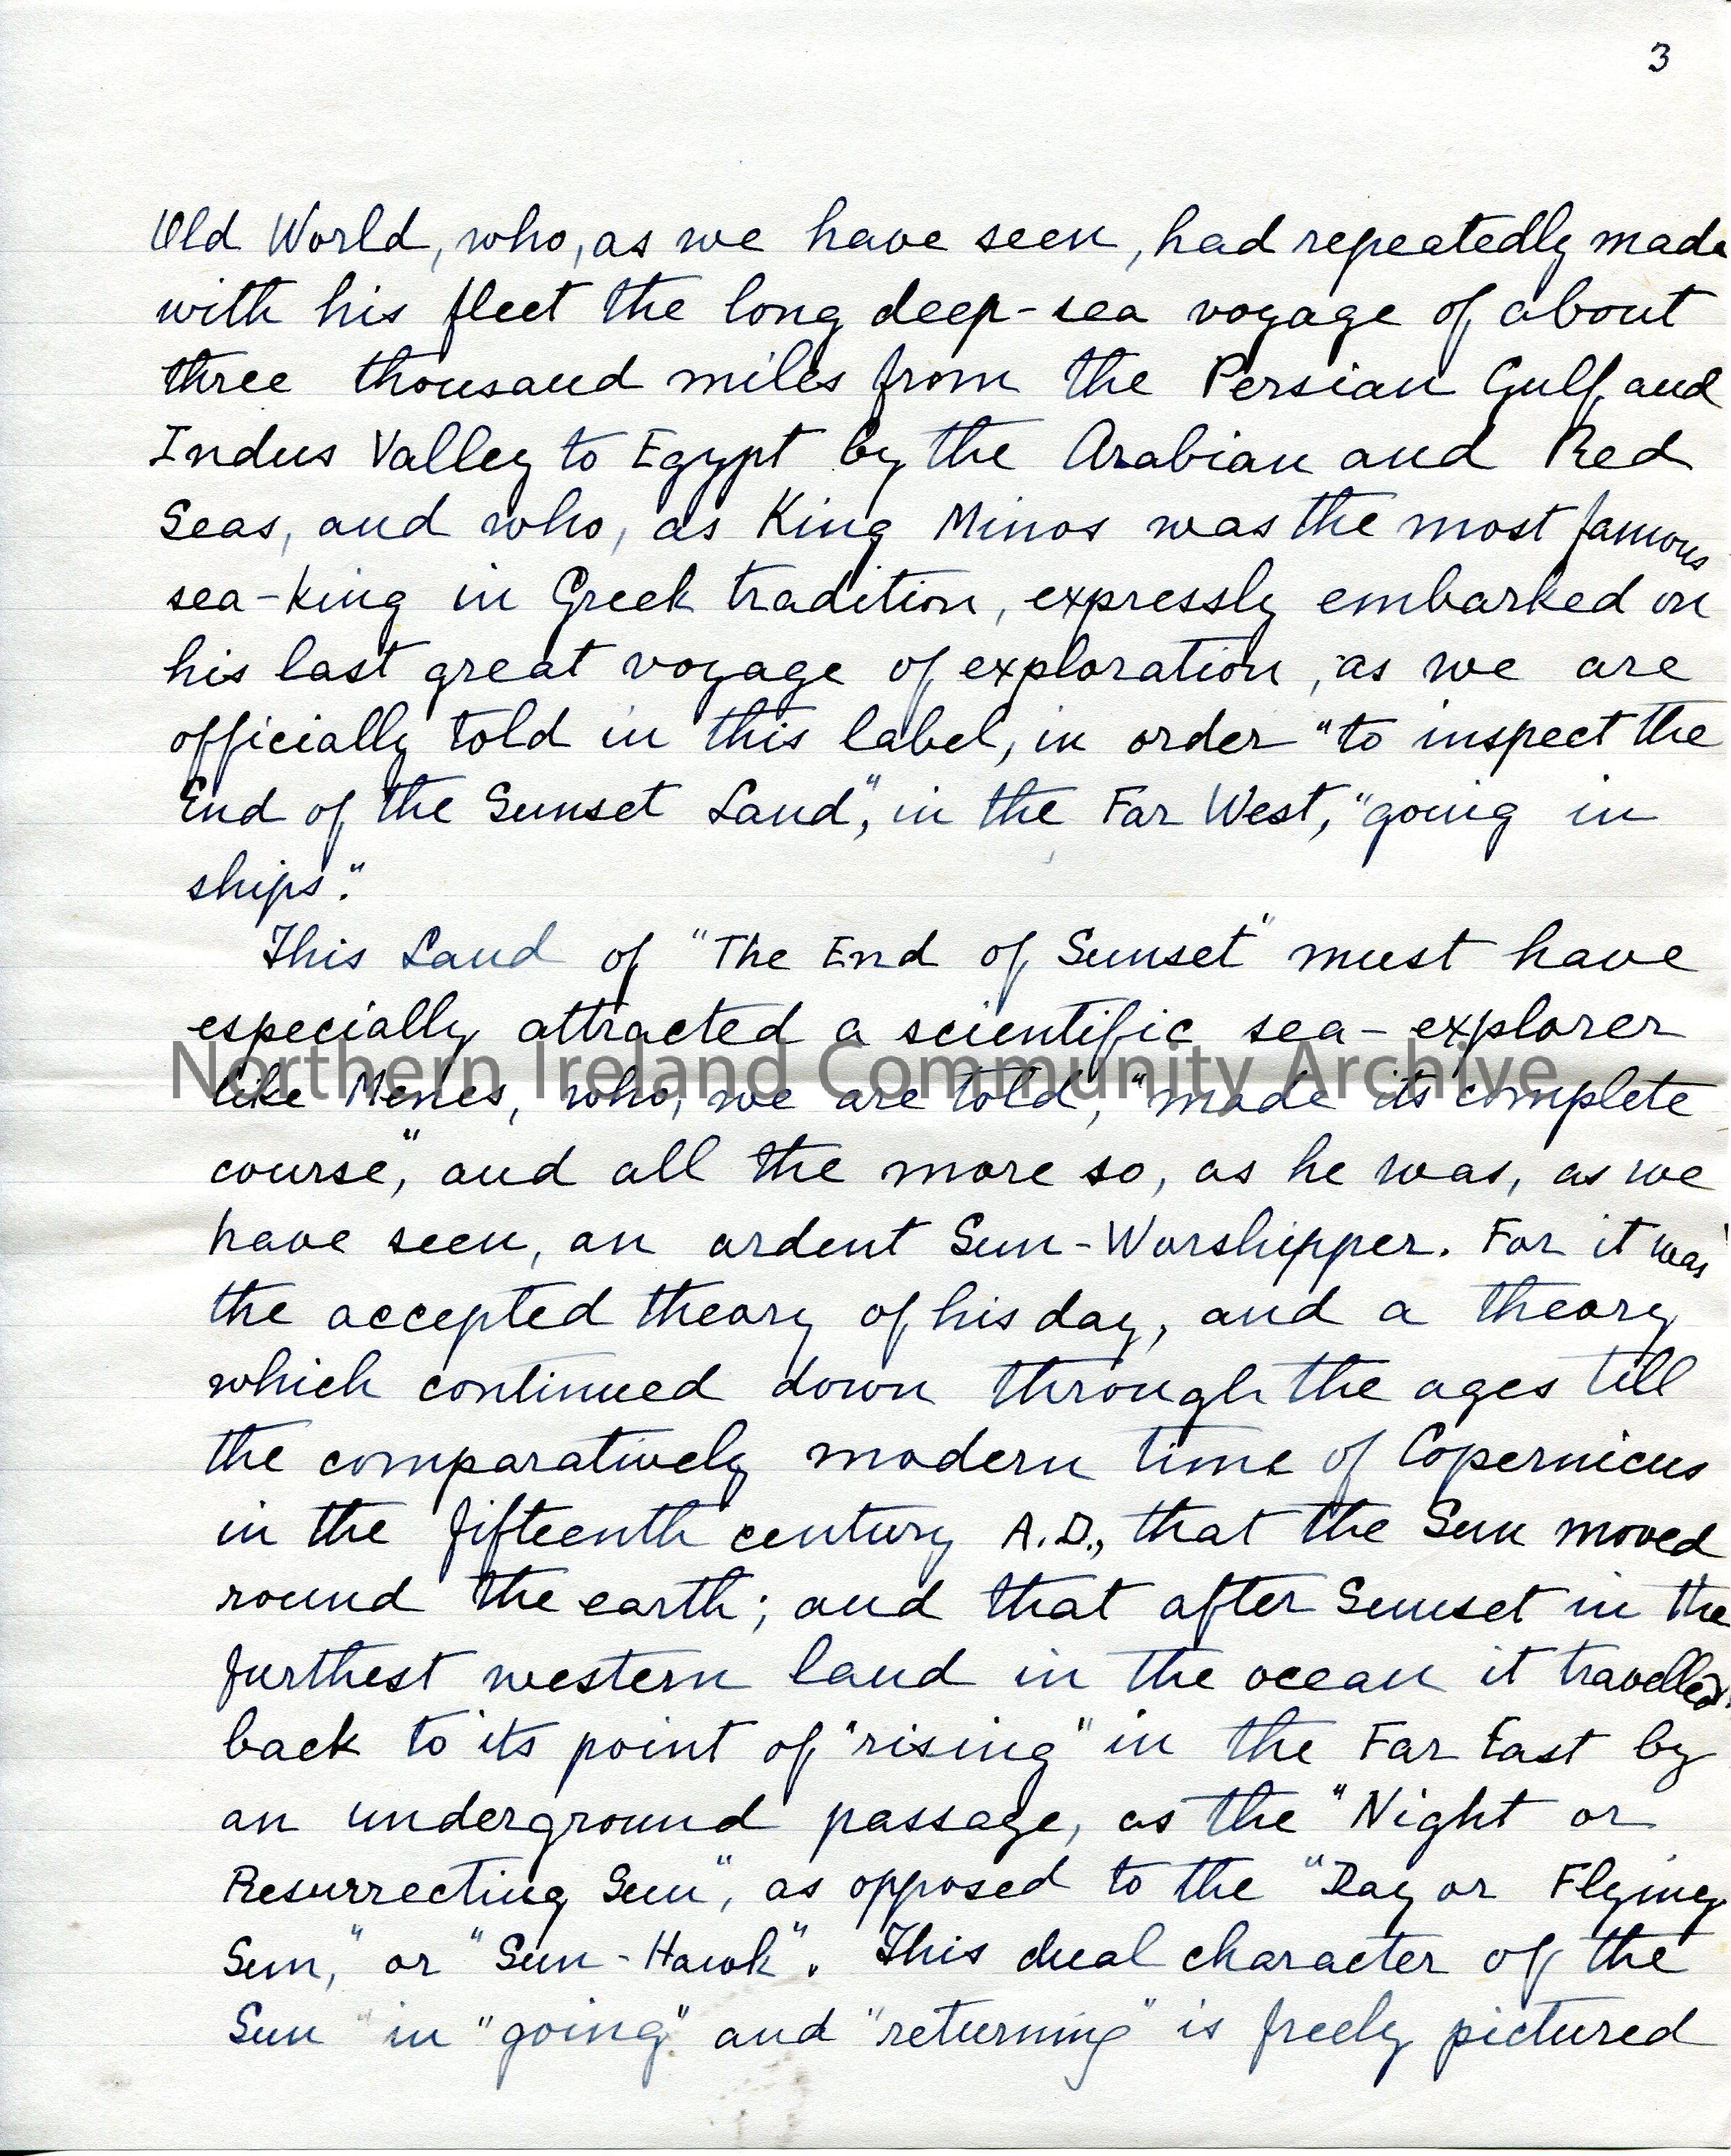 3
Old World, who, as we have seen, had repeatedly made
with his fleet the long deep-sea voyage of about
three thousand miles from the Persian Gulf and
Indus Valley to Egypt by the Arabian and Red
Seas, and who, as King Minos was the most famous
sea-king in Greek tradition, expressly embarked on
his last great voyage of exploration, as we are
officially told in this label, in order "to inspect the
End of the Sunset Land", in the Far West, "going in
ships."
This Land of "The End of Sunset" must have
especially attracted a scientific sea-explorer
Northern Ireland Community Archive
like Menes, who, we are told, "made its complete
course," and all the more so, as he was, as we
have seen, an ardent Sun-Worshipper. For it was
the accepted theory of his day, and a theory
which continued down through the ages till
the comparatively modern time of Copernicus
in the fifteenth century A.D., that the Sun moved
round the earth; and that after Sunset in the
furthest western land in the ocean it travelled
back to its point of "rising" in the Far East by
an underground passage, as the "Night or
Resurrecting Sun", as opposed to the "Day or Flying
Sun," or "Sun-Hawk". This dual character of the
Sun "in "going" and "returning" is freely pictured